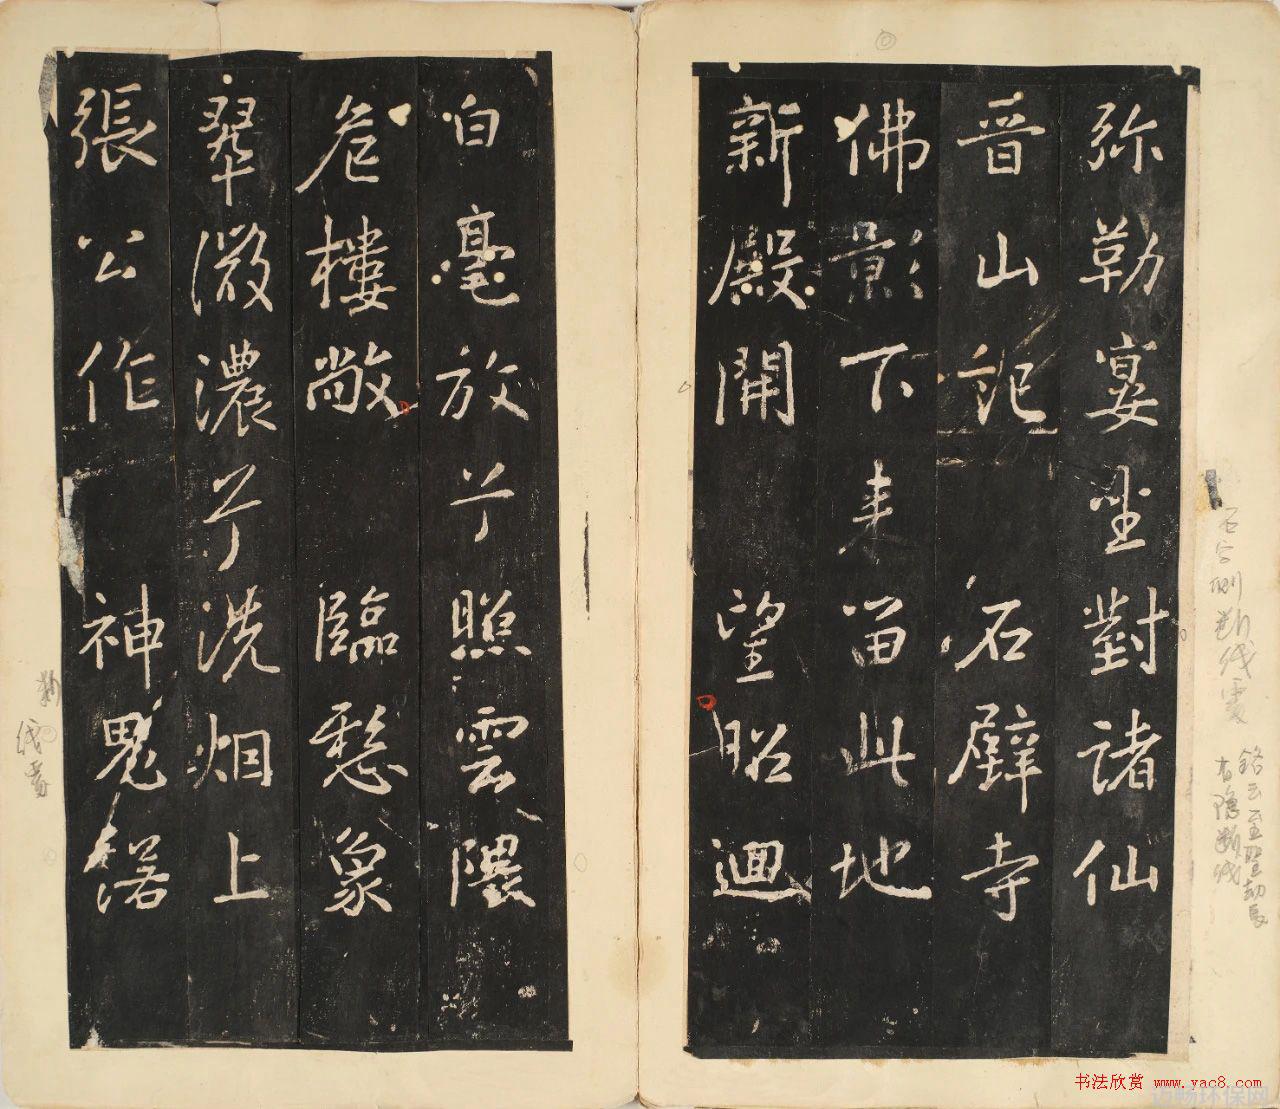 弥勒宴坐對諸仙
晋山圮 石壁寺
佛影下来留此地
新殿開 望昭迴
白毫放兮照雲隈
危樓敞 臨懸象
翠微濃兮洗烟上
張公作 神鬼落
书法欣赏 www.yac8.com